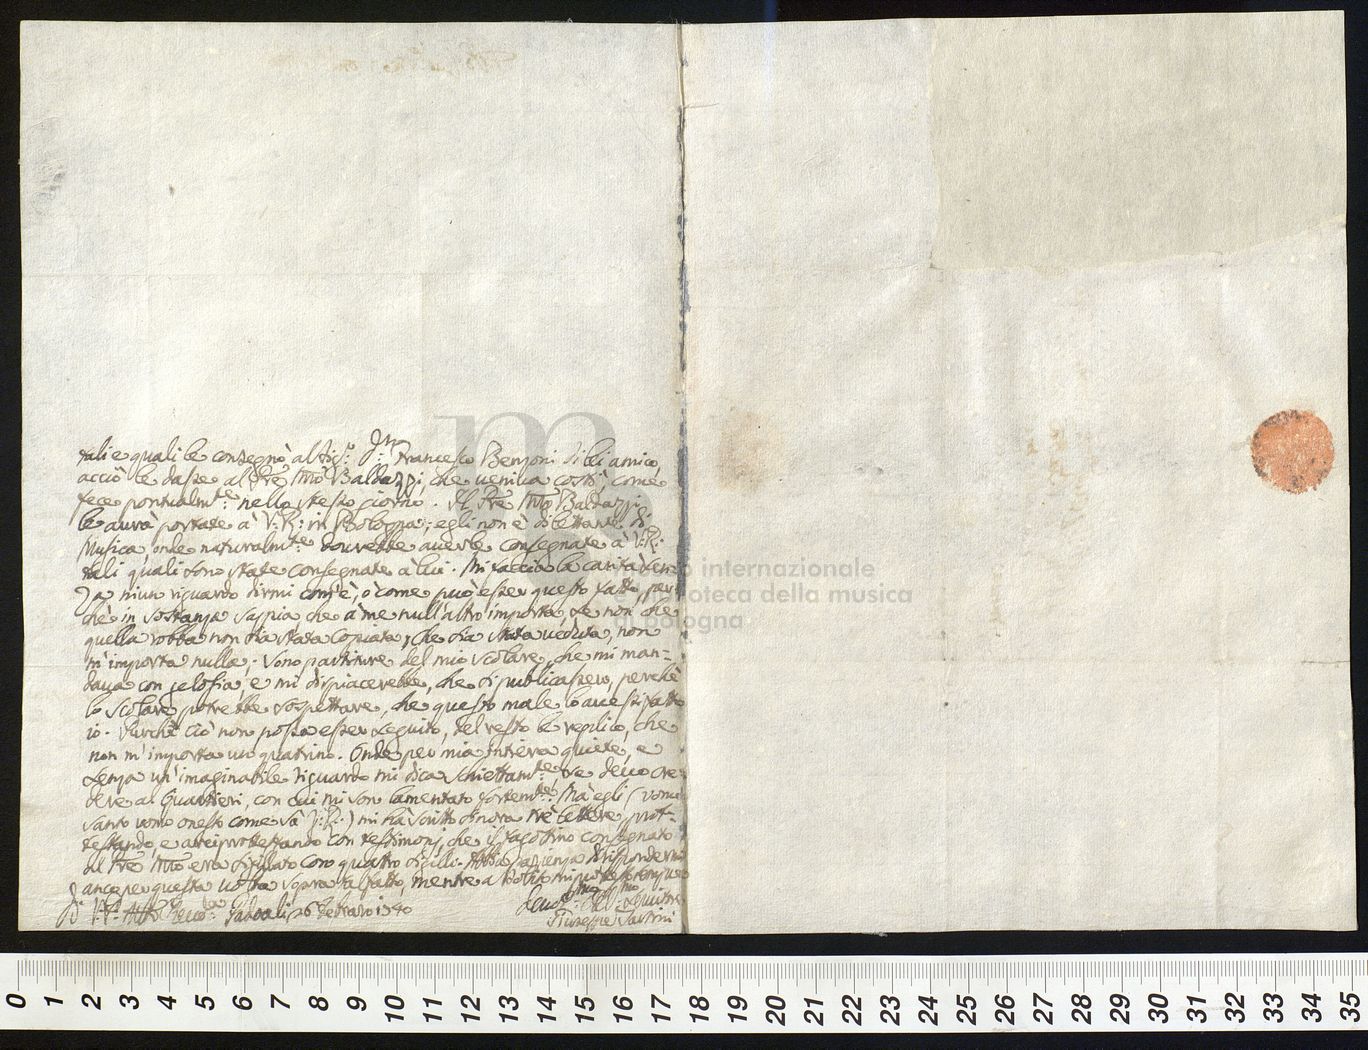 tali e quali le consegnò al Sigr. Dn. Francesco Benzoni di lei amico,
acciò le dasse al Pre Mro Baldazzi, che veniva costì, come
fece pontualmte: nello stesso giorno. Il Pre Mro Baldazzi
le avrà portate à V: R: in Bologna; egli non è dilettante di
Musica, onde naturalmte: dovrebbe averle consegnate à V: R:
tali quali sono state consegnate à lui. Mi faccia la carità sen-
za niun riguardo dirmi com'è, ò come può esser questo fatto, per-
chè in sostanza sappia che à me null'altro importa, se non che
quella robba non sia stata copiata; che sia stata veduta, non
m'importa nulla. Sono partiture del mio scolare, che mi man-
dava con gelosia, e mi dispiacerebbe, che si publicassero, perchè
lo scolare potrebbe sospettare, che questo male lo avessi fatto
io. Purchè ciò non possa esser seguito, del resto le replico, che
non m'importa un quattrino. Onde per mia intiera quiete, e
senza un'imaginabile riguardo mi dica schiettamte: se devo cre-
dere al Guartieri, con cui mi sono lamentato fortemte: Mà egli (
santo uomo onesto come sà V: R:) mi hà scritto sinora trè lettere, prot-
testando, e arciprottestando con testimonj, che il fagottino consegnato
al Pre Mro era sigilato con quattro sigilli. Abbia pazienza di rispondermi
anco per questa volta sopra tal fatto, mentre a
Di V: P: Molto Revda: Padova li 26 Febraro 1740
Giuseppe Tartini
museo internazionale
e biblioteca della musica
di bologna
0 1 2 3 4 5 6 7 8 9 10 11 12 13 14 15 16 17 18 19 20 21 22 23 24 25 26 27 28 29 30 31 32 33 34 35